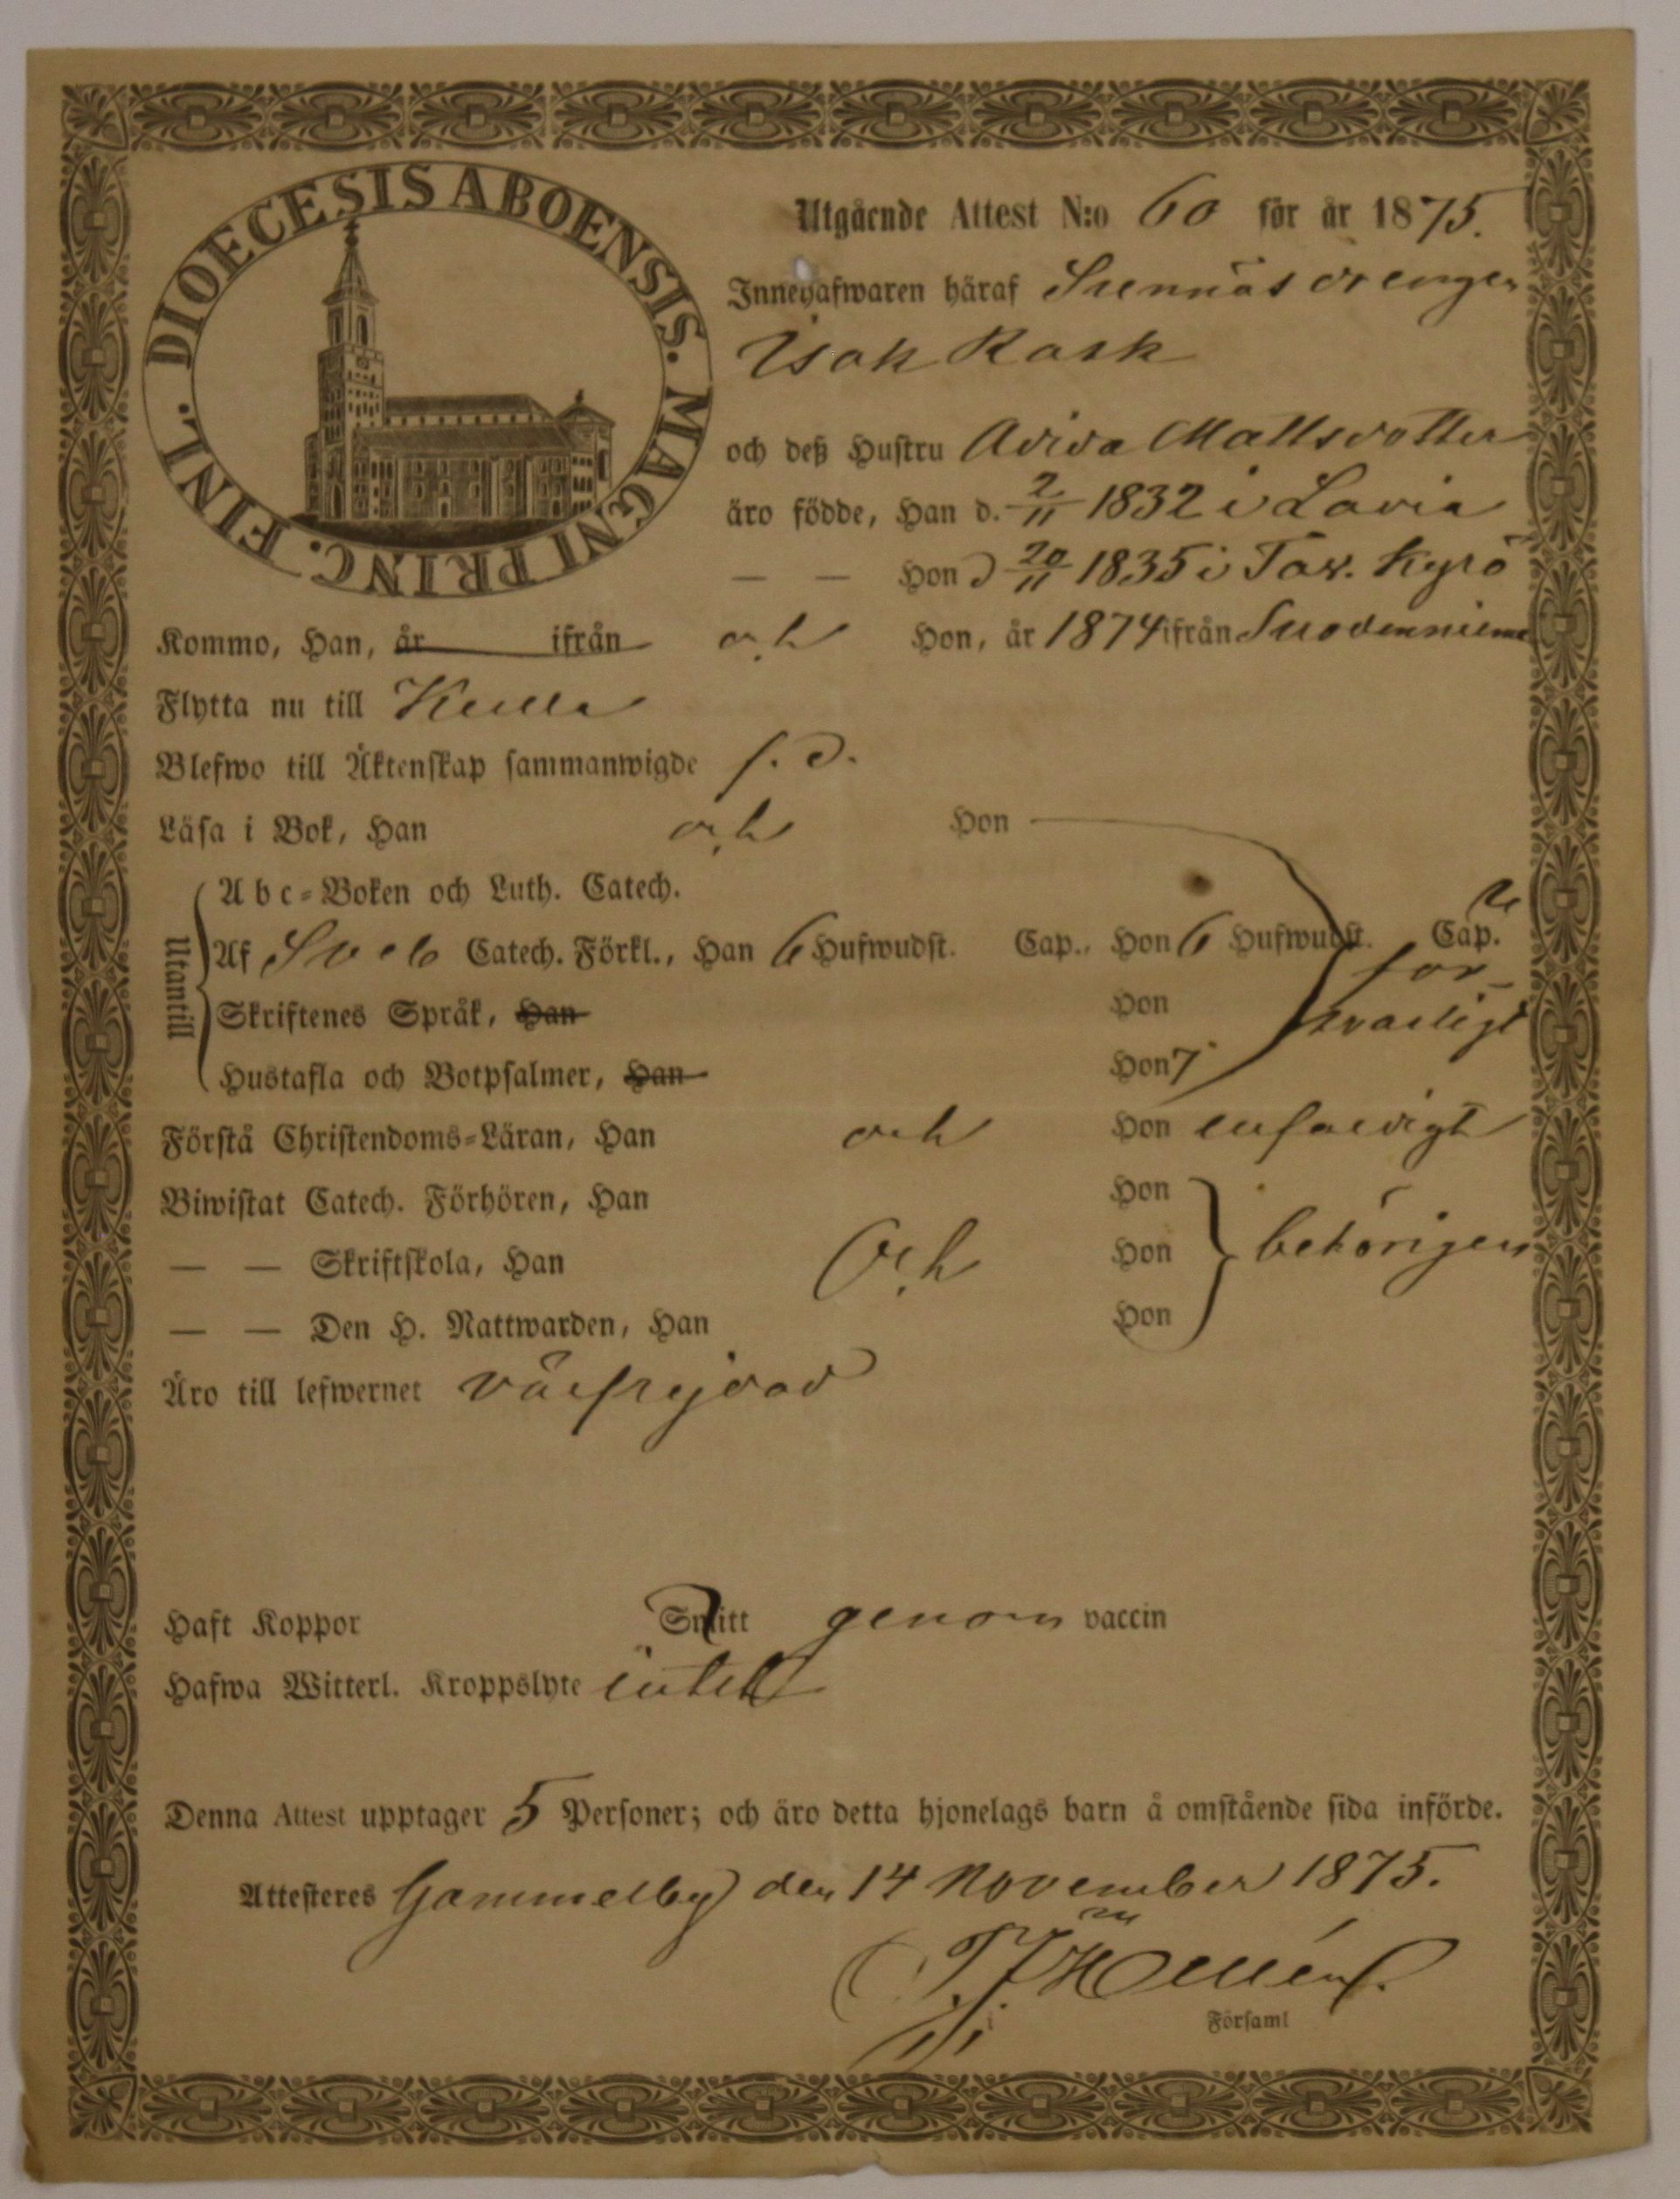 DIOECESIS ABOENSIS. MAGNI PRINC. FINL.
Utgående Attest N:o 60 för år 1875.
Innehafwaren häraf drengen
Isak Rask
och deß Hustru Mattsdotter
äro födde, Han d. 2/11 1832 i Lavia
— — Hon d 20/11 1835 i Tav. Kyrö
Kommo, Han, år ifrån och Hon, år 1874 ifrån Suodenniemi
Flytta nu till Kulla
Blefwo till Äktenskap sammanwigde f. d.
Läsa i Bok, Han och Hon
Utantill
Abc-Boken och Luth. Catech.
Af Sveb Catech. Förkl., Han 6 Hufwudst. Cap., Hon 6 Hufwudst. Cap.
för-
Skriftenes Språk, Han Hon svarligt
Hustafla och Botpsalmer, Han Hon 7
Förstå Christendoms-Läran, Han och Hon enfaldigt
Biwistat Catech. Förhören, Han Hon
— — Skriftskola, Han Och Hon behörigen
— — Den H. Nattwarden, Han Hon
Äro till lefwernet välfrejdad
Haft Koppor Smitt genom vaccin
Hafwa Witterl. Kroppslyte intet
Denna Attest upptager 5 Personer; och äro detta hjonelags barn å omstående sida införde.
Attesteres Gammelby den 14 November 1875.
Hellén
i Församl